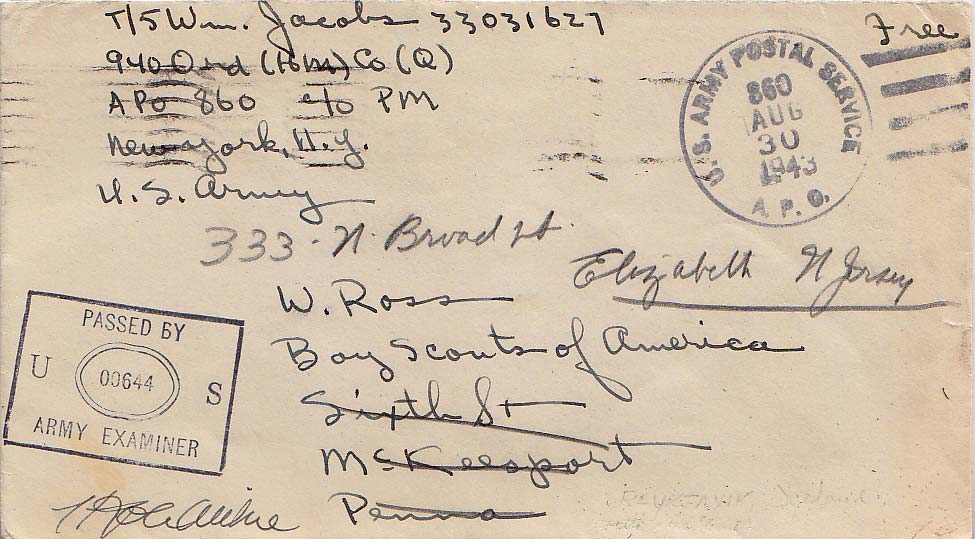 T/5 Wm. Jacobs 33031627
Free
940 Ord (HM) Co (Q)
APO 860 c/o PM
New York, N.Y.
U.S. Army
U.S. ARMY POSTAL SERVICE
860
AUG
30
1943
A.P.O.
333 N Broad St.
Elizabeth N Jersey
W. Ross
Boy Scouts of America
Sixth St
McKeesport
Penna
PASSED BY
U 00644 S
ARMY EXAMINER
REYKJAVIK, Iceland